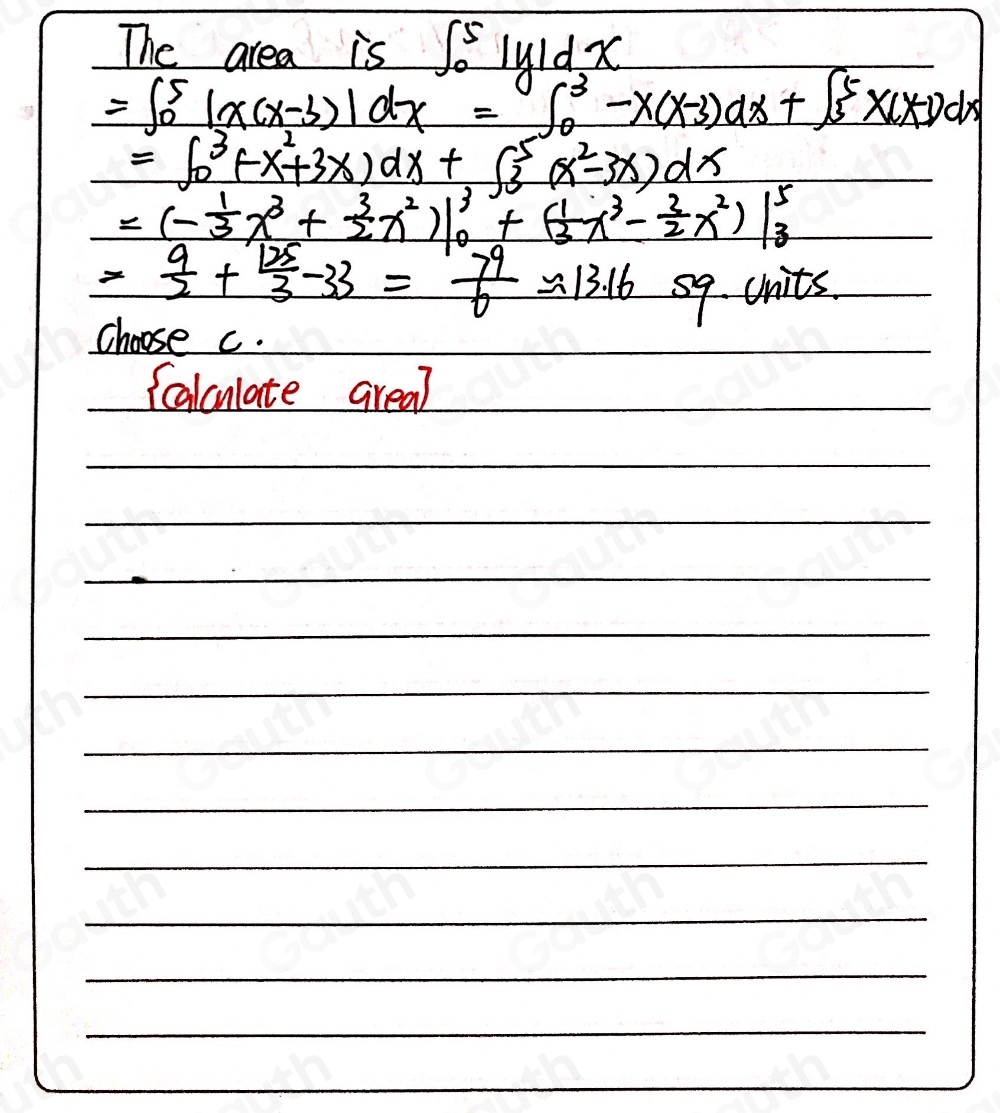 The area is ∫₀⁵ |y|dx
= ∫₀⁵ |x(x-3)| dx = ∫₀³ -x(x-3)dx + ∫₃⁵ x(x-3)dx
= ∫₀³ (-x²+3x)dx + ∫₃⁵ (x²-3x)dx
= (-1/3 x³ + 3/2 x²)|₀³ + (1/3 x³ - 3/2 x²)|₃⁵
= 9/2 + 125/3 - 33 = 79/6 ≈ 13.16 sq. units.
choose c.
{calculate area}